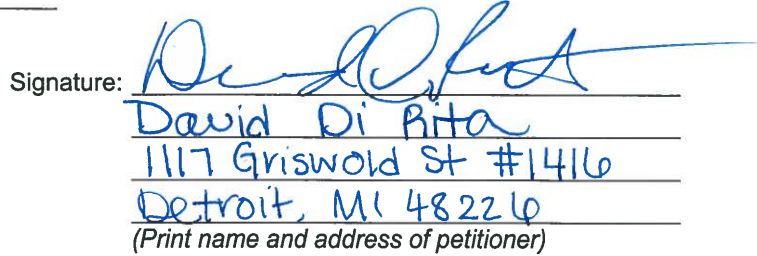 Signature: David Di Rita
David Di Rita
1117 Griswold St #1416
Detroit, MI 48226
(Print name and address of petitioner)